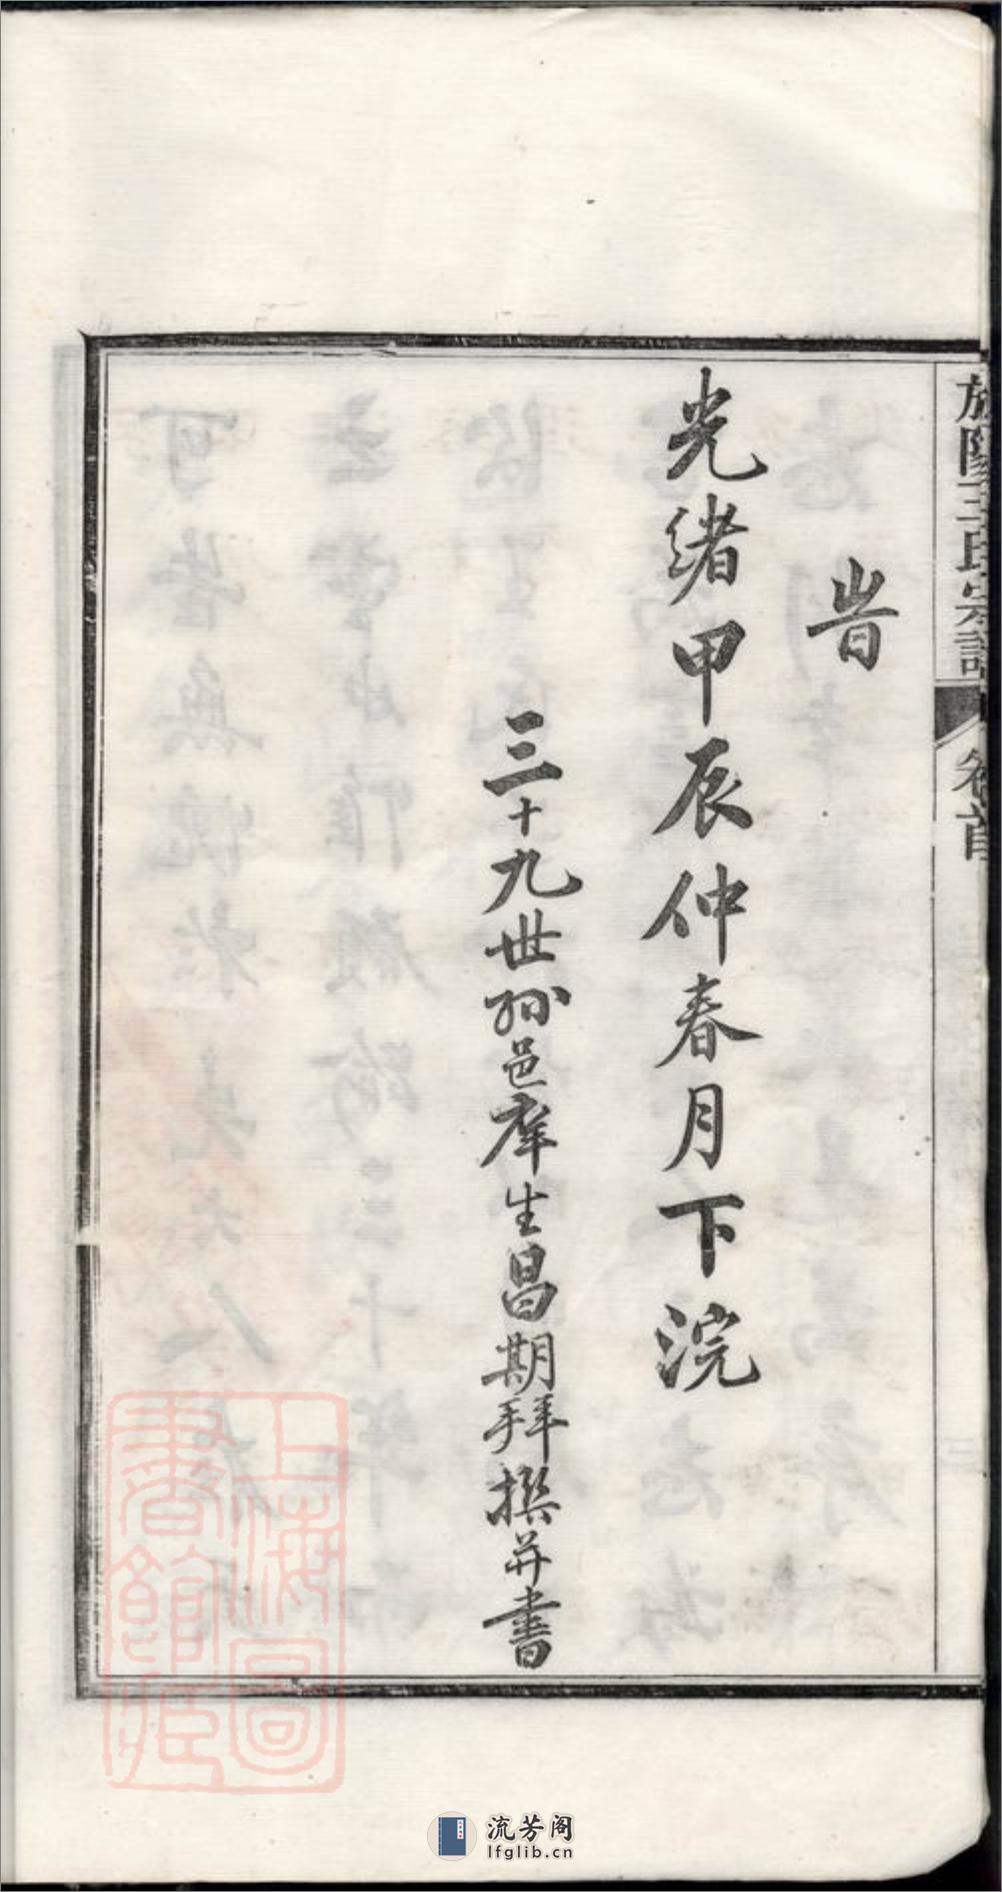 陽王氏宗譜
卷首
旹
光緒甲辰仲春月下浣
三十九世孫邑庠生昌期拜撰并書
上海圖
書館藏
流芳阁
lfglib.cn